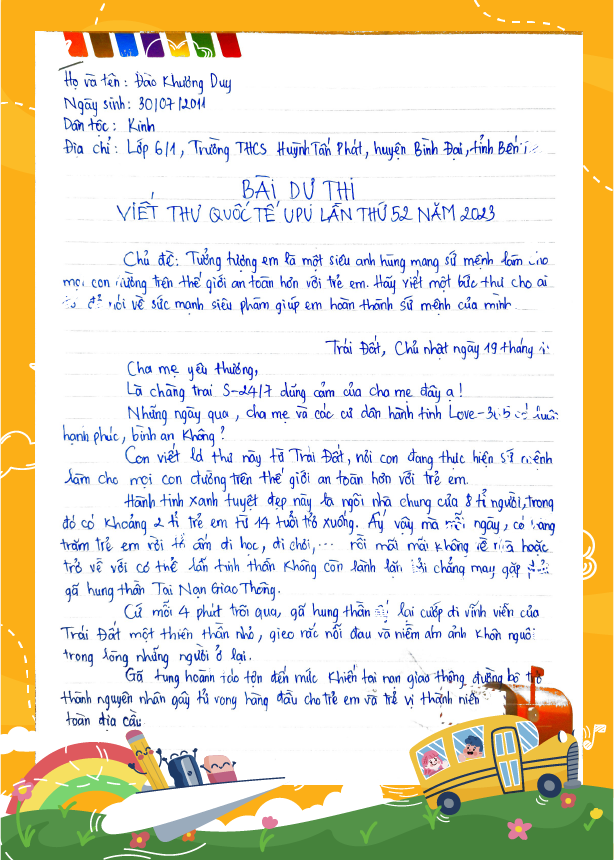 Họ và tên : Đào Khương Duy
Ngày sinh : 30/07/2011
Dân tộc : Kinh
Địa chỉ : Lớp 6/1, Trường THCS Huỳnh Tấn Phát, huyện Bình Đại, tỉnh Bến
BÀI DỰ THI
VIẾT THƯ QUỐC TẾ UPU LẦN THỨ 52 NĂM 2023
Chủ đề: Tưởng tượng em là một siêu anh hùng mang sứ mệnh làm cho
mọi con đường trên thế giới an toàn hơn với trẻ em. Hãy viết một bức thư cho ai
đó để nói về sức mạnh siêu phàm giúp em hoàn thành sứ mệnh của mình
Trái Đất, Chủ nhật ngày 19 tháng
Cha mẹ yêu thương,
Là chàng trai S-24/7 dũng cảm của cha mẹ đây ạ!
Những ngày qua, cha mẹ và các cư dân hành tinh Love-365 có luôn
hạnh phúc, bình an không?
Con viết lá thư này từ Trái Đất, nơi con đang thực hiện sứ mệnh
làm cho mọi con đường trên thế giới an toàn hơn với trẻ em.
Hành tinh xanh tuyệt đẹp này là ngôi nhà chung của 8 tỉ người, trong
đó có khoảng 2 tỉ trẻ em từ 14 tuổi trở xuống. Ấy vậy mà mỗi ngày, có hàng
trăm trẻ em rời tổ ấm đi học, đi chơi,... rồi mãi mãi không về nữa hoặc
trở về với cơ thể lẫn tinh thần không còn lành lặn bởi chẳng may gặp phải
gã hung thần Tai Nạn Giao Thông.
Cứ mỗi 4 phút trôi qua, gã hung thần ấy lại cướp đi vĩnh viễn của
Trái Đất một thiên thần nhỏ, gieo rắc nỗi đau và niềm ám ảnh khôn nguôi
trong lòng những người ở lại.
Gã tung hoành táo tợn đến mức khiến tai nạn giao thông đường bộ trở
thành nguyên nhân gây tử vong hàng đầu cho trẻ em và trẻ vị thành niên
toàn địa cầu